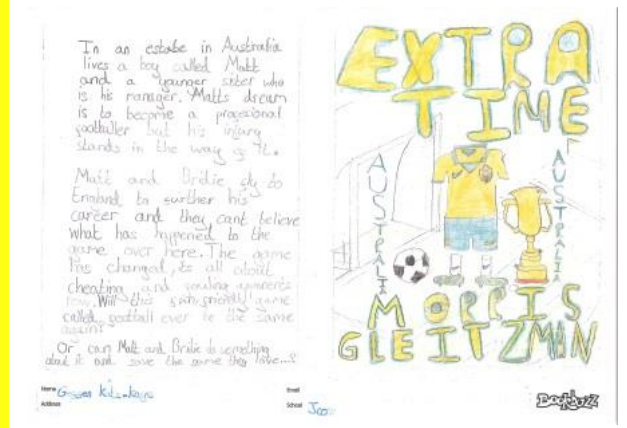 In an estabe in Australia
lives a boy called Matt
and a younger sister who
is his manager. Matts dream
is to become a profesional
footballer but his injury
stands in the way of it.
Matt and Bridie fly to
England to further his
career and they cant believe
what has happened to the
game over here. The game
has changed, its all about
cheating and
now. Will this game
called football ever be the same
again?
Or can Matt and Bridie do something
about it and save the game they love...?
Name
Address
Email
School
EXTRA
TIME
AUSTRALIA
AUSTRALIA
MORRIS
GLEITZMAN
Bookbuzz